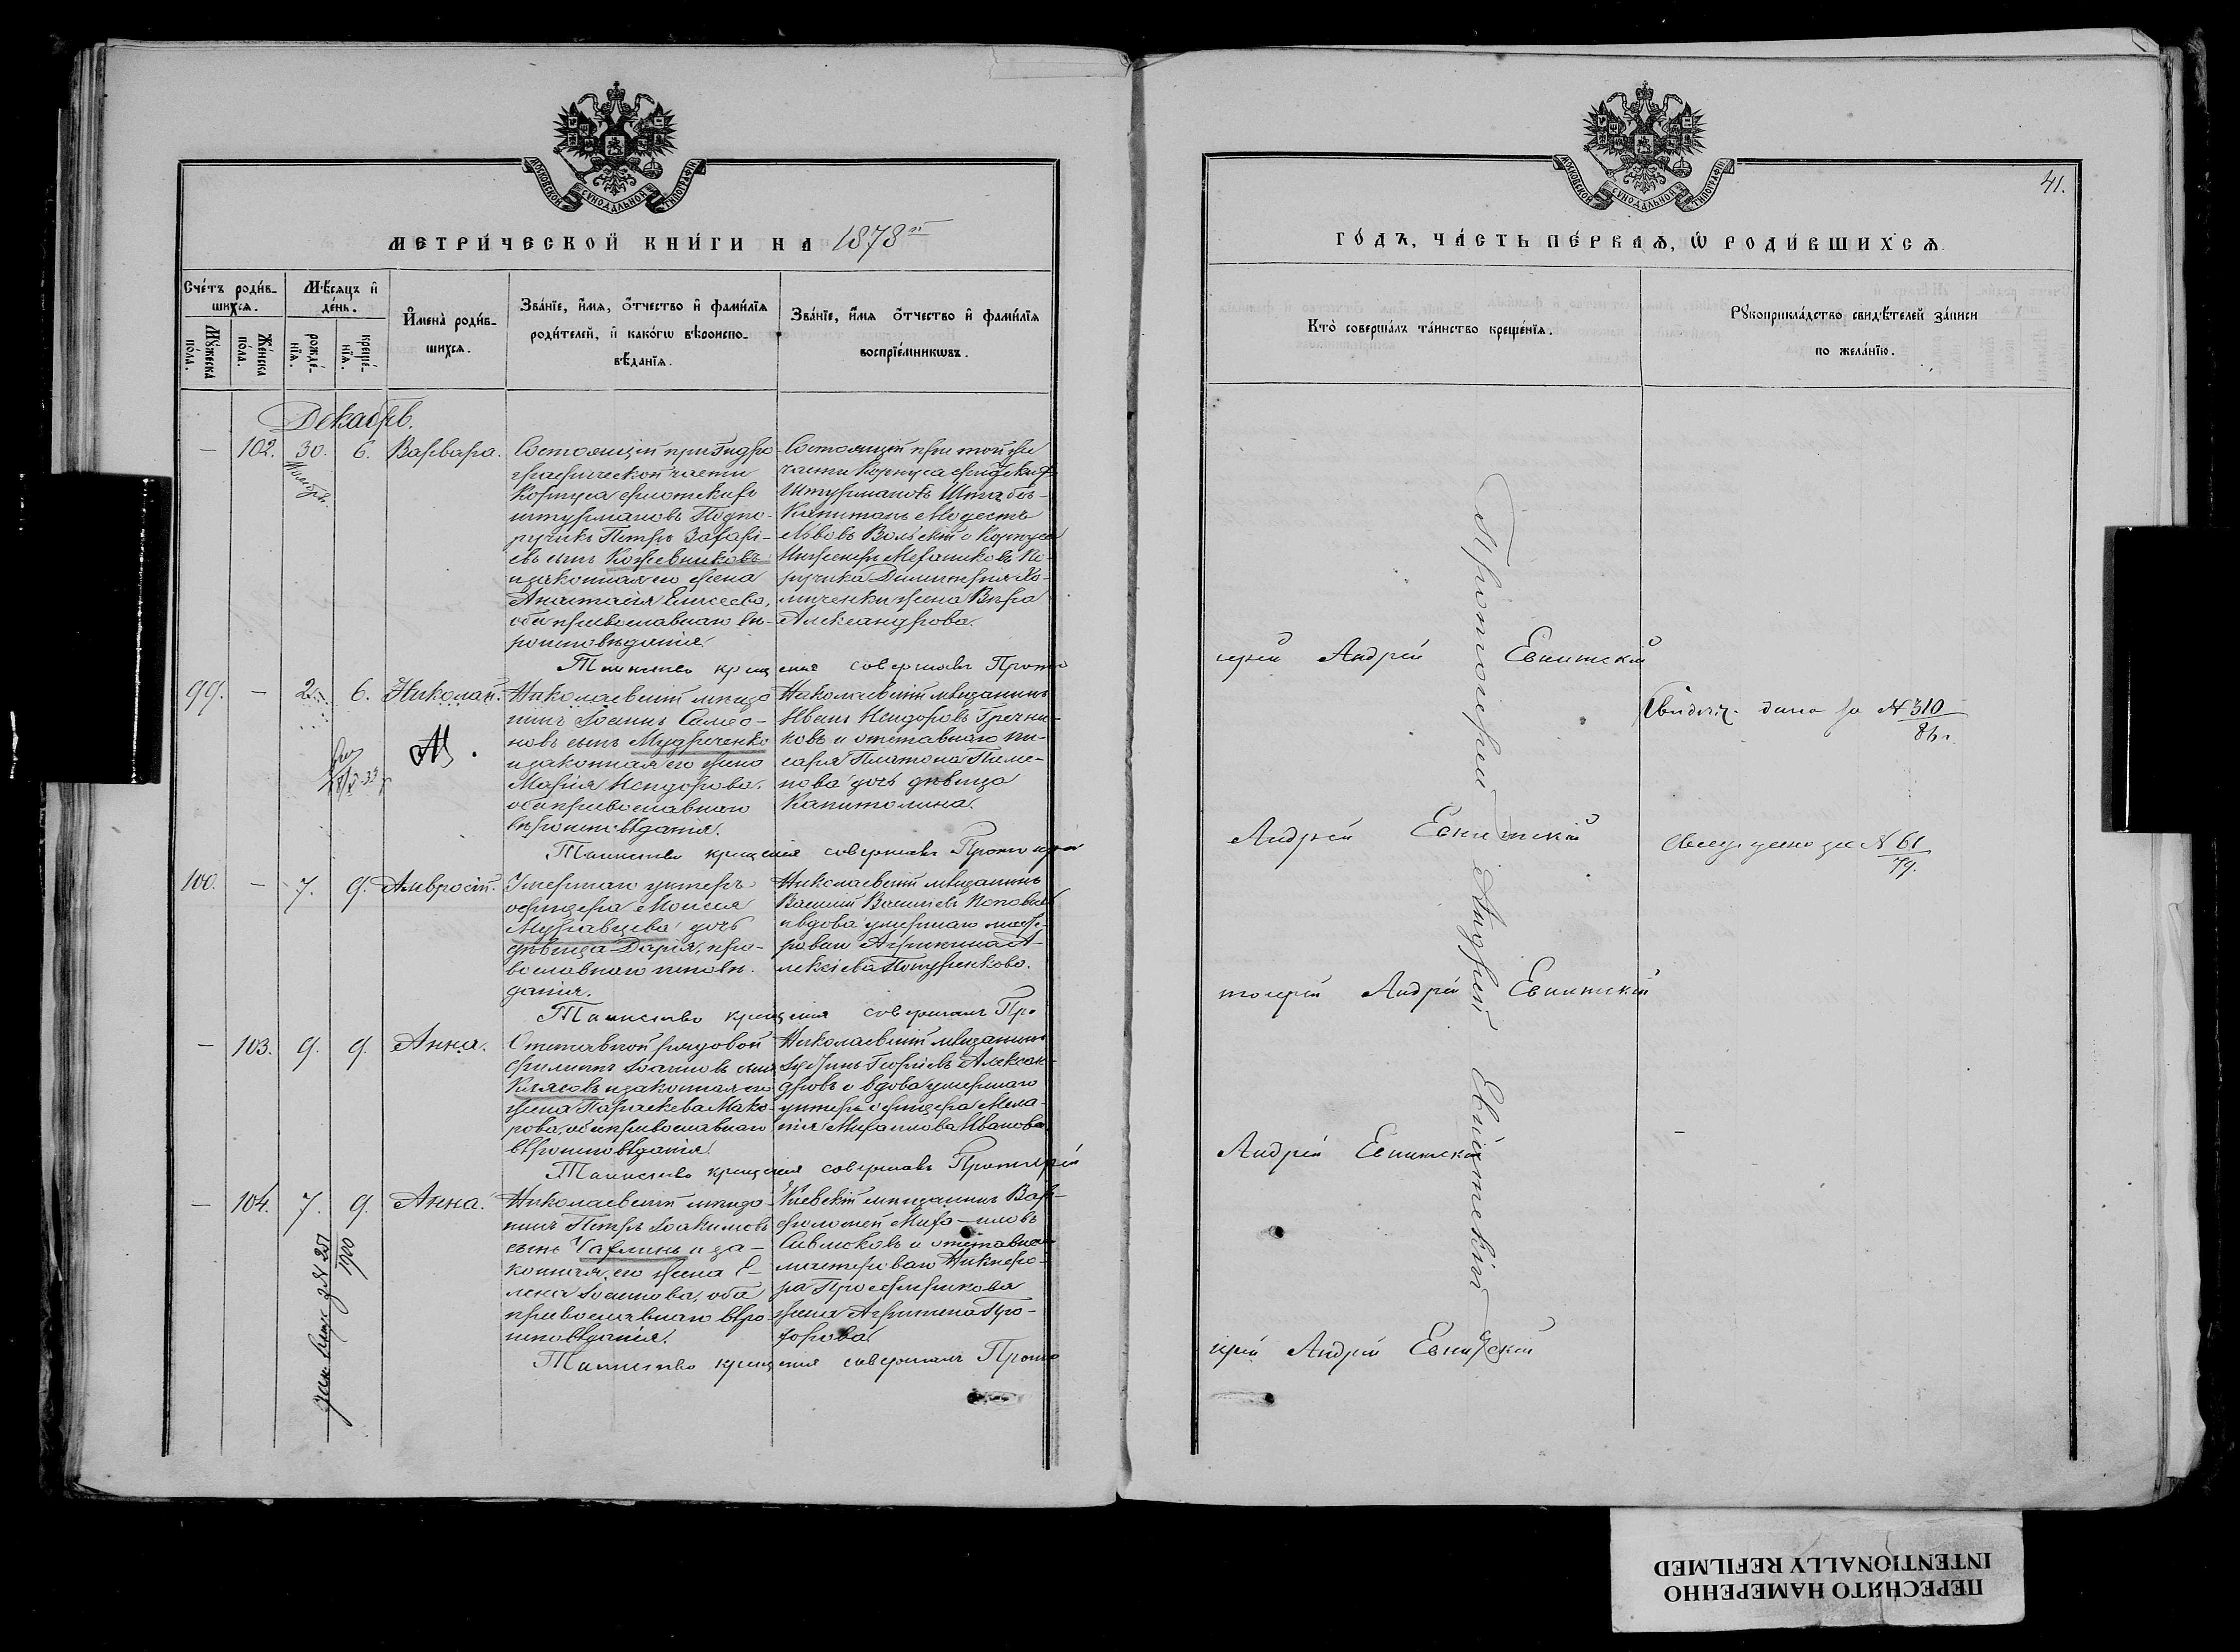 МОСКОВСКОЙ СѴНОДАЛЬНОЙ ТИПОГРАФІИ
МЕТРИ́ЧЕСКОЙ КНИ́ГИ НА 1878й
Сче́тъ роди́вшихсѧ.
Мѣ́сяцъ и҆ де́нь.
И҆мена̀ роди́вшихсѧ.
Зва́нїе, и҆́мѧ, о҆́тчество и҆ фами́лїѧ
роди́телей, и҆ како́гѡ вѣроиспо-
вѣ́данїѧ.
Зва́нїе, и҆́мѧ о҆́тчество и҆ фами́лїѧ
воспрїе́мникѡвъ.
Мꙋ́жеска по́ла.
Же́нска по́ла.
рожде́нїѧ.
креще́нїѧ.
Декабрь.
— 102. 30. Ноября. 6. Варвара.
Состоящій при Гидро
графической части
Корпуса флотскихъ
штурмановъ Подпо-
ручикъ Петръ Захарі-
евъ сынъ Кожевниковъ
и законная его жена
Анастасія Елисеева,
оба православнаго вѣ-
роисповѣданія.
Состоящій при той же
части Корпуса флотскихъ
Штурмановъ Штабсъ-
Капитанъ Модестъ
Львовъ Вольскій и Корпуса
Инженеръ Механиковъ По-
ручика Димитрія Хо-
миченки жена Вѣра
Александрова.
Таинство крещенія совершалъ Прото
99. — 2. 6. Николай.
Николаевскій мѣща
нинъ Іоаннъ Самсо-
новъ сынъ Мудриченко
и законная его жена
Марія Исидорова,
оба православнаго
вѣроисповѣданія.
Николаевскій мѣщанинъ
Иванъ Исидоровъ Гречни-
ковъ и отставнаго пи-
саря Платона Пиме-
нова дочь дѣвица
Капитолина.
Таинство крещенія совершалъ Протоіерей
100. — 7. 9. Амвросій.
Умершаго унтеръ
офицера Моисея
Муравцева дочь
дѣвица Дарія, пра-
вославнаго исповѣ-
данія.
Николаевскій мѣщанинъ
Василій Васильевъ Поповъ
и вдова умершаго масте-
роваго Агрипина А-
лексіева
Таинство крещенія совершалъ Про
— 103. 9. 9. Анна.
Отставной рядовой
Филиппъ Іоанновъ сынъ
Клясовъ и законная его
жена Параскева Мака-
рова, оба православнаго
вѣроисповѣданія.
Николаевскій мѣщанинъ
Георгіевъ Алексан-
дровъ и вдова умершаго
унтеръ офицера Мела-
нія Михаилова Иванова
Таинство крещенія совершалъ Протоіерей
— 104. 7. 9. Анна.
Николаевскій мѣща-
нинъ Петръ Іоакимовъ
сынъ Чаплинъ и за-
конная его жена Е-
лена Іоаннова, оба
православнаго вѣро-
исповѣданія.
Кіевскій мѣщанинъ Вар-
фоломей Миха-иловъ
и отставнаго
мастероваго Никифо-
ра
жена Агрипина Про-
хорова
Таинство крещенія совершалъ Прото
№ 251
1900
МОСКОВСКОЙ СѴНОДАЛЬНОЙ ТИПОГРАФІИ
41.
ГО́ДЪ, ЧА́СТЬ ПЕ́РВАѦ, Ѡ҆ РОДИ́ВШИХСѦ
Кто̀ соверша́лъ та́инство креще́нїѧ.
Рꙋкоприкла́дство свидѣ́телей за́писи
по жела́нїю.
іерей Андрей Евнитскій
Андрей Евнитскій
тоіерей Андрей Евнитскій
Андрей Евнитскій
іерей Андрей Евнитскій
Протоіерей Андрей Евнитскій
Свидѣт. дано за № 310
86 г.
№ 61
79.
ПЕРЕСНЯТО НАМЕРЕННО
INTENTIONALLY REFILMED